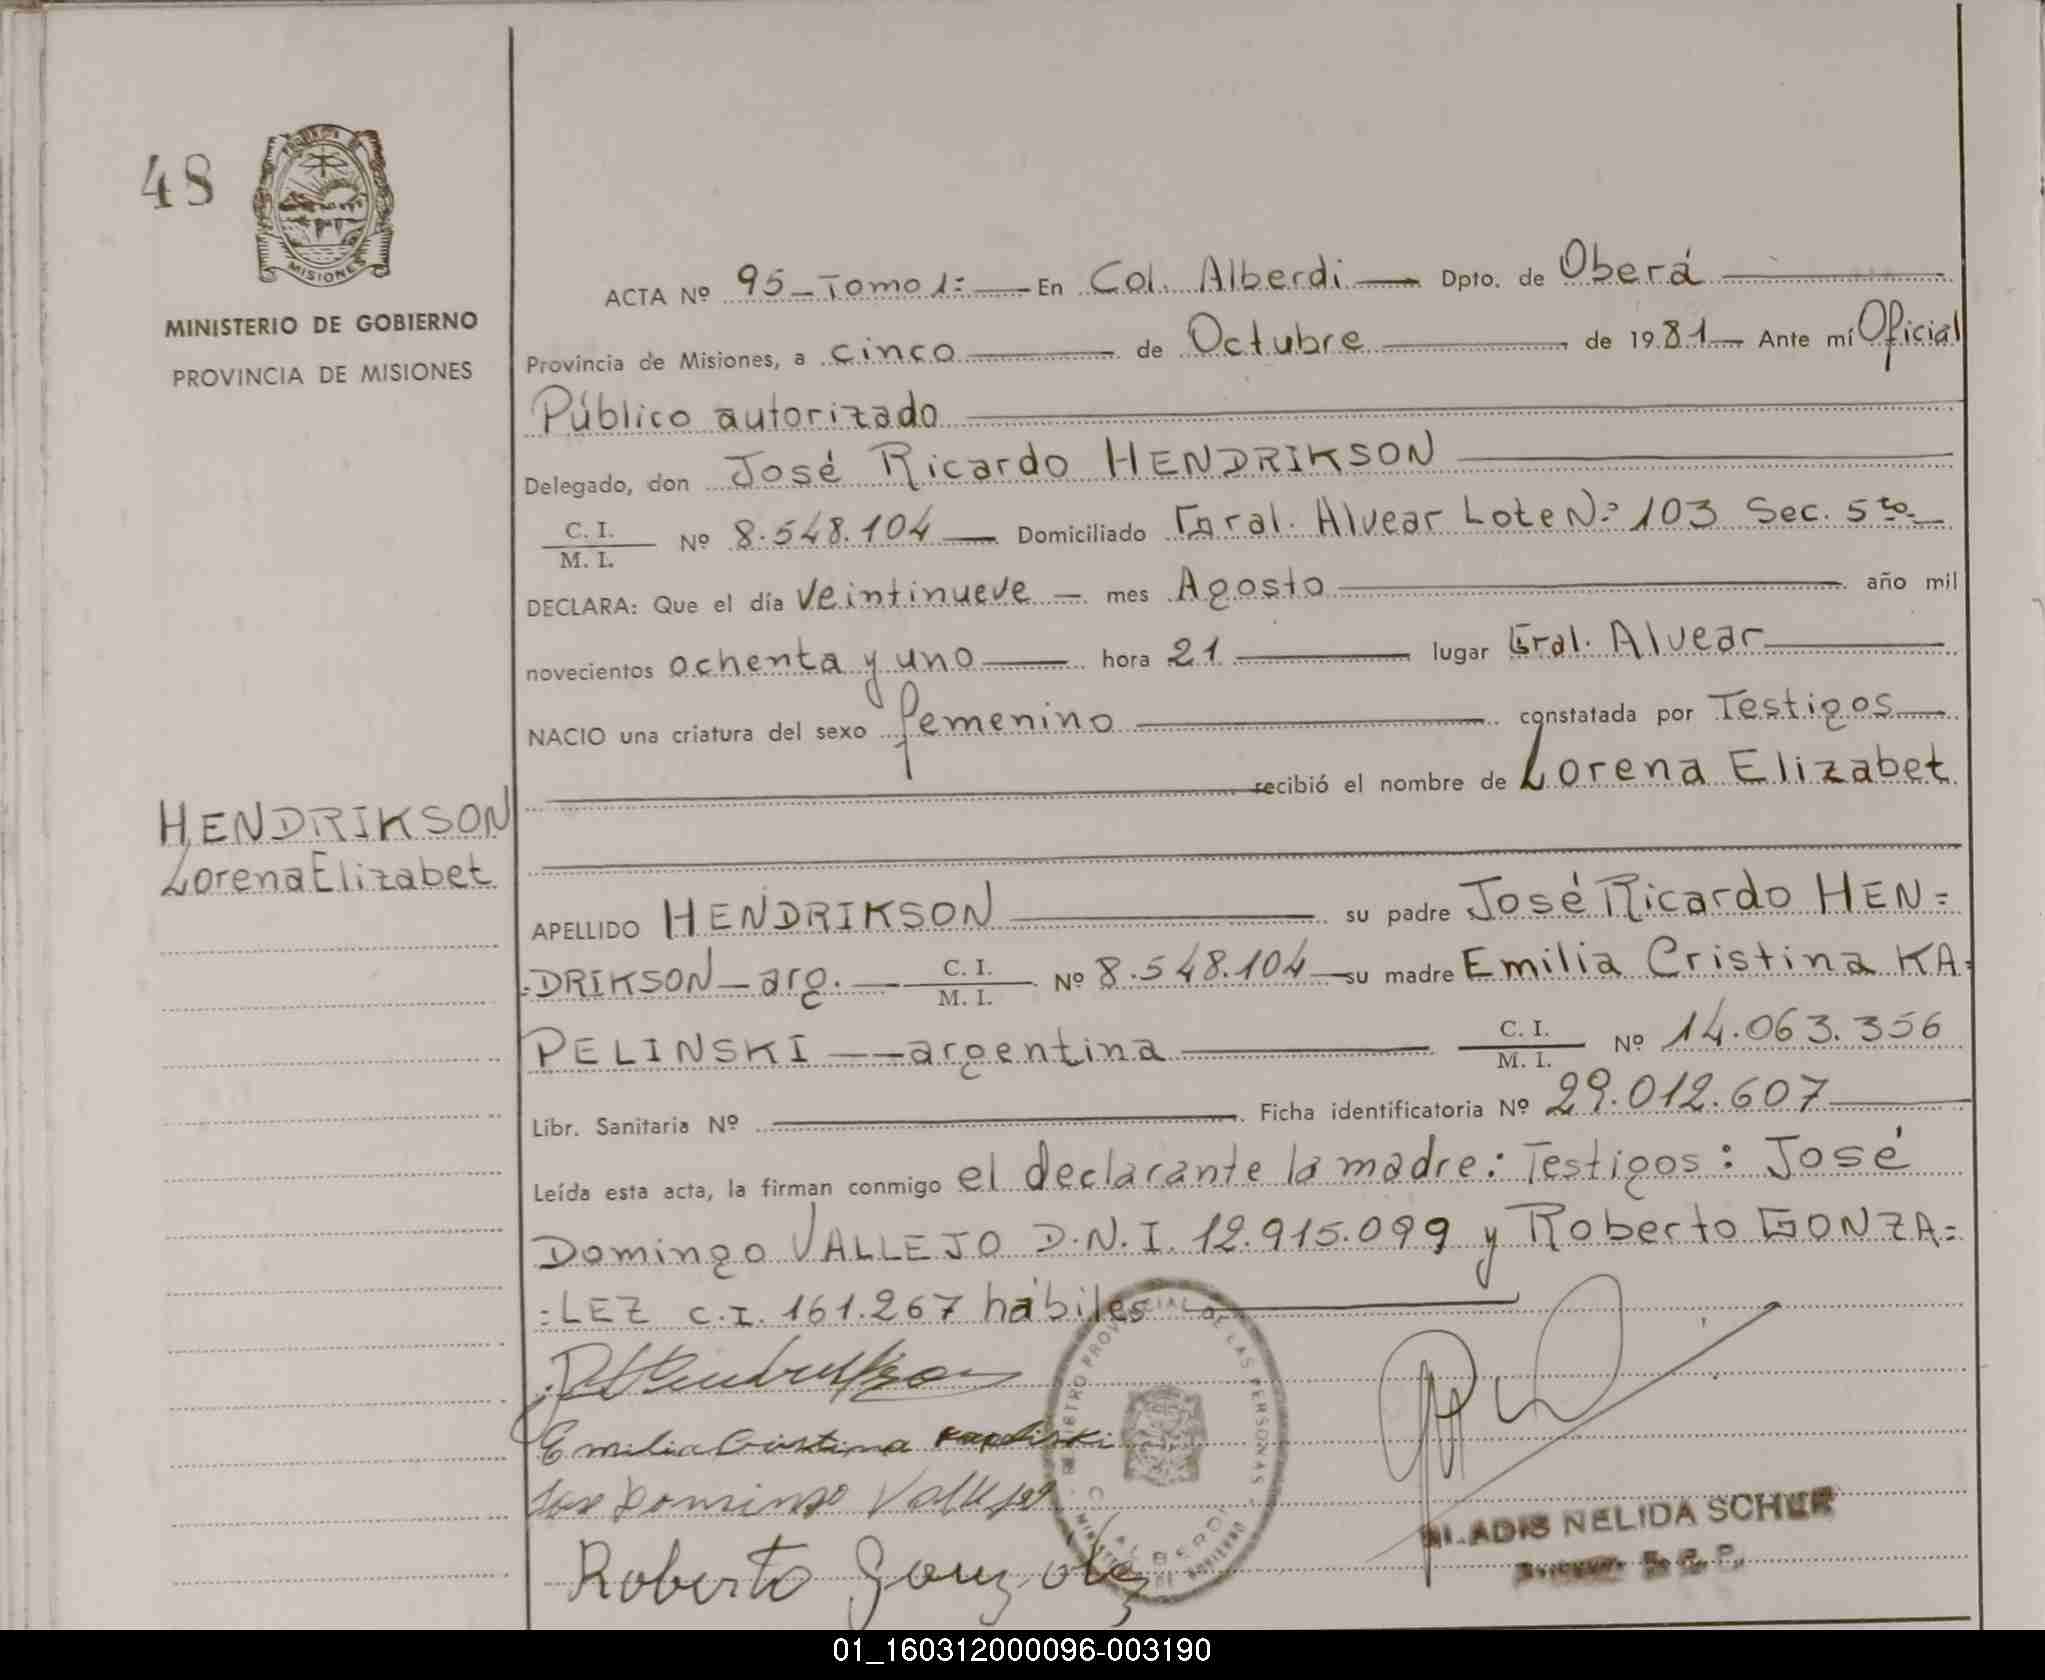 48
PROVINCIA DE
MISIONES
MINISTERIO DE GOBIERNO
PROVINCIA DE MISIONES
ACTA Nº 95 - Tomo 1: — En Col. Alberdi — Dpto. de Oberá
Provincia de Misiones, a cinco — de Octubre — de 1981 — Ante mí Oficial
Público autorizado
Delegado, don José Ricardo HENDRIKSON
C. I.
M. I.
Nº 8.548.104 — Domiciliado Gral. Alvear Lote Nº 103 Sec. 5ta.
DECLARA: Que el día veintinueve — mes Agosto — año mil
novecientos ochenta y uno — hora 21 — lugar Gral. Alvear
NACIO una criatura del sexo femenino — constatada por Testigos
recibió el nombre de Lorena Elizabet
HENDRIKSON
Lorena Elizabet
APELLIDO HENDRIKSON — su padre José Ricardo HEN=
=DRIKSON — arg. — C. I. / M. I. Nº 8.548.104 — su madre Emilia Cristina KA=
PELINSKI — argentina — C. I. / M. I. Nº 14.063.356
Libr. Sanitaria Nº — Ficha identificatoria Nº 29.012.607
Leída esta acta, la firman conmigo el declarante la madre: Testigos: José
Domingo VALLEJO D.N.I. 12.915.099 y Roberto GONZA=
=LEZ C.I. 161.267 hábiles
Emilia Cristina
Domingo Vallejo
Roberto Gonzalez
REGISTRO PROVINCIAL DE LAS PERSONAS
ALBERDI
MINISTERIO DE GOBIERNO
NELIDA SCHER
01_160312000096-003190